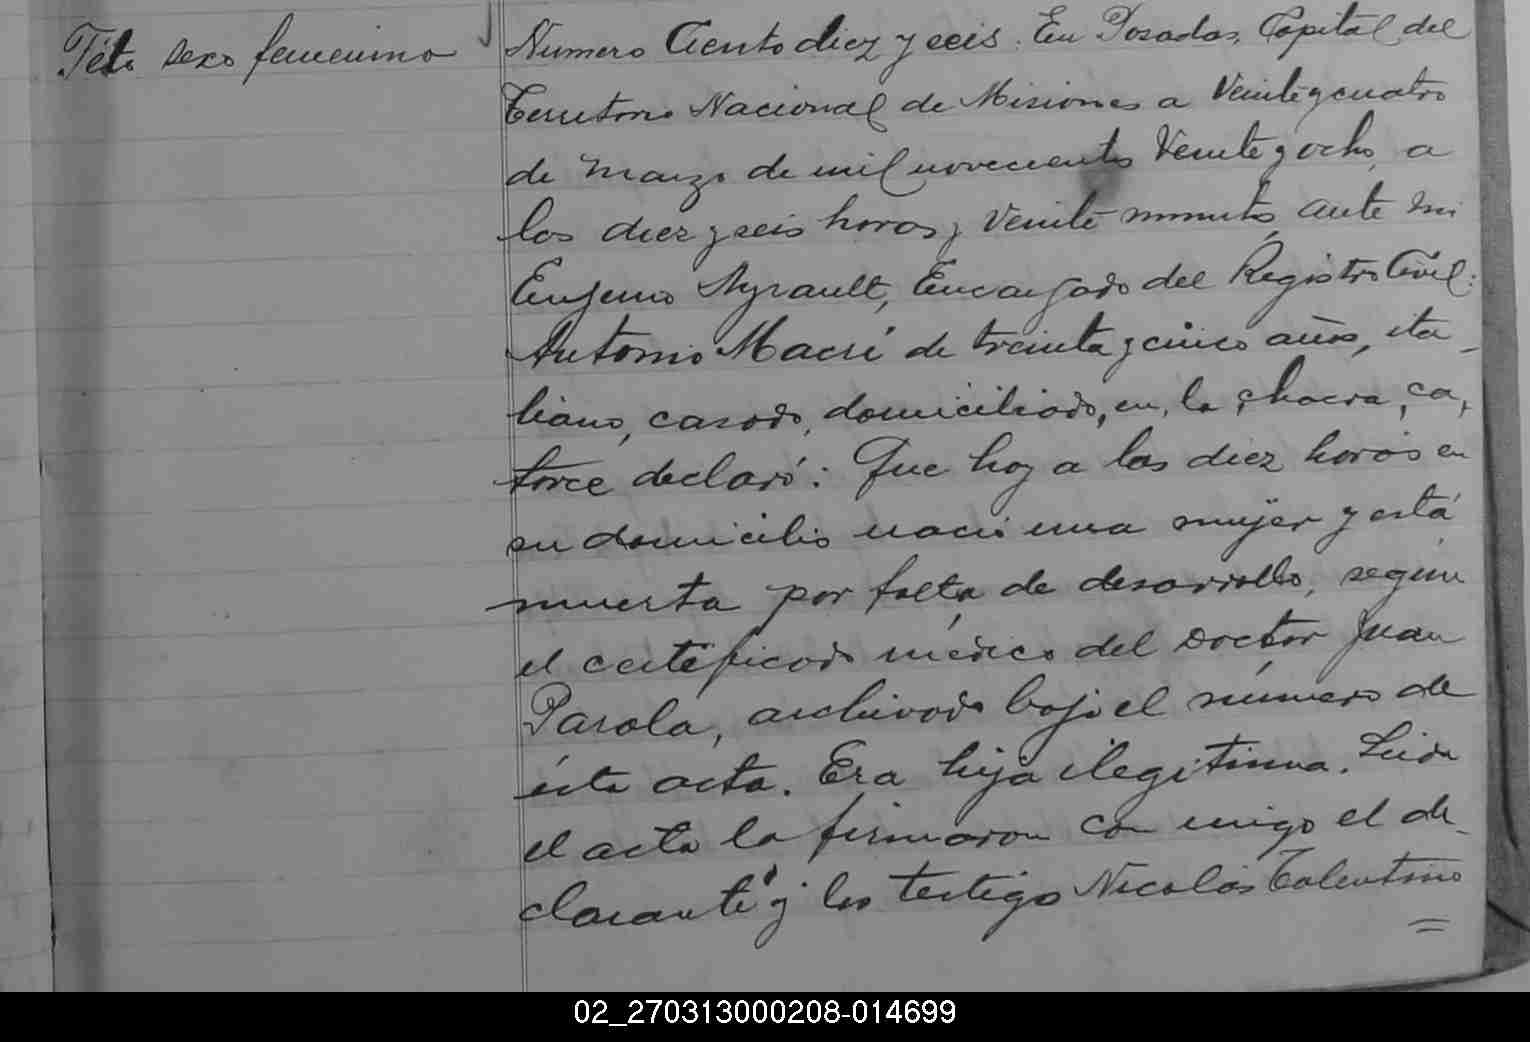 Féto sexo femenino
Numero Ciento diez y seis. En Posadas, Capital del
Territorio Nacional de Misiones a Veinte y cuatro
de Marzo de mil novecientos Veinte y ocho, a
las diez y seis horas y veinte minutos ante mi
Eugenio Ayrault, Encargado del Registro Civil:
Antonio Macri de treinta y cinco años, ita-
liano, casado, domiciliado, en, la chacra, ca,
torce declaró: Que hoy a las diez horas en
su domicilio nació una mujer y está
muerta por falta de desarrollo, según
el certificado médico del Doctor Juan
Parola, archivado bajo el número de
ésta acta. Era hija ilegitima. Leida
el acta la firmaron con migo el de-
clarante y los testigo Nicolás Tolentino
02_270313000208-014699